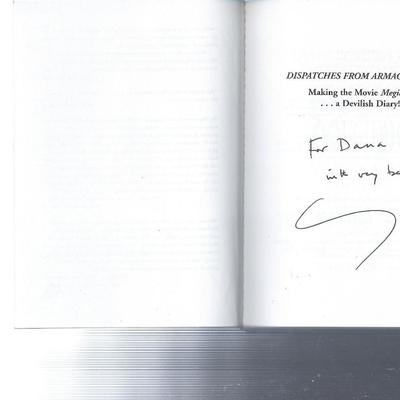 DISPATCHES FROM ARMAG
Making the Movie Megi
. . . a Devilish Diary!
For Dana
with very be